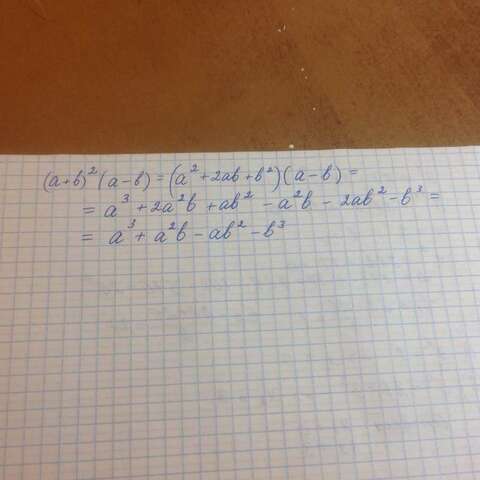 (a+b)²(a-b)=(a²+2ab+b²)(a-b)=
= a³+2a²b+ab²-a²b-2ab²-b³=
= a³+a²b-ab²-b³